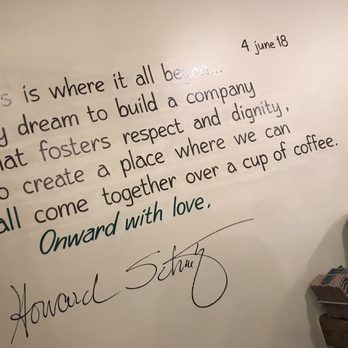 4 june 18
s is where it all began...
y dream to build a company
hat fosters respect and dignity,
o create a place where we can
all come together over a cup of coffee.
Onward with love.
Howard Schultz